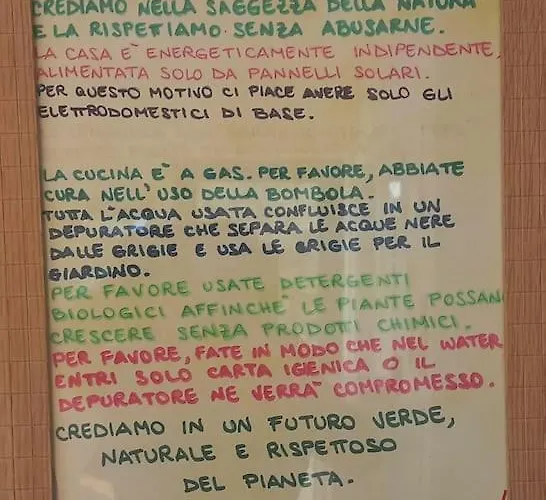 CREDIAMO NELLA SAGGEZZA DELLA NATURA
E LA RISPETIAMO. SENZA ABUSARNE.
LA CASA E' ENERGETICAMENTE INDIPENDENTE,
ALIMENTATA SOLO DA PANNELLI SOLARI.
PER QUESTO MOTIVO CI PIACE AVERE SOLO GLI
ELETTRODOMESTICI DI BASE.
LA CUCINA E' A GAS. PER FAVORE, ABBIATE
CURA NELL' USO DELLA BOMBOLA.
TUTTA L'ACQUA USATA CONFLUISCE IN UN
DEPURATORE CHE SEPARA LE ACQUE NERE
DALLE GRIGIE E USA LE GRIGIE PER IL
GIARDINO.
PER FAVORE USATE DETERGENTI
BIOLOGICI AFFINCHE' LE PIANTE POSSAN
CRESCERE SENZA PRODOTTI CHIMICI.
PER FAVORE, FATE IN MODO CHE NEL WATER
ENTRI SOLO CARTA IGIENICA O IL
DEPURATORE NE VERRA' COMPROMESSO.
CREDIAMO IN UN FUTURO VERDE,
NATURALE E RISPETTOSO
DEL PIANETA.